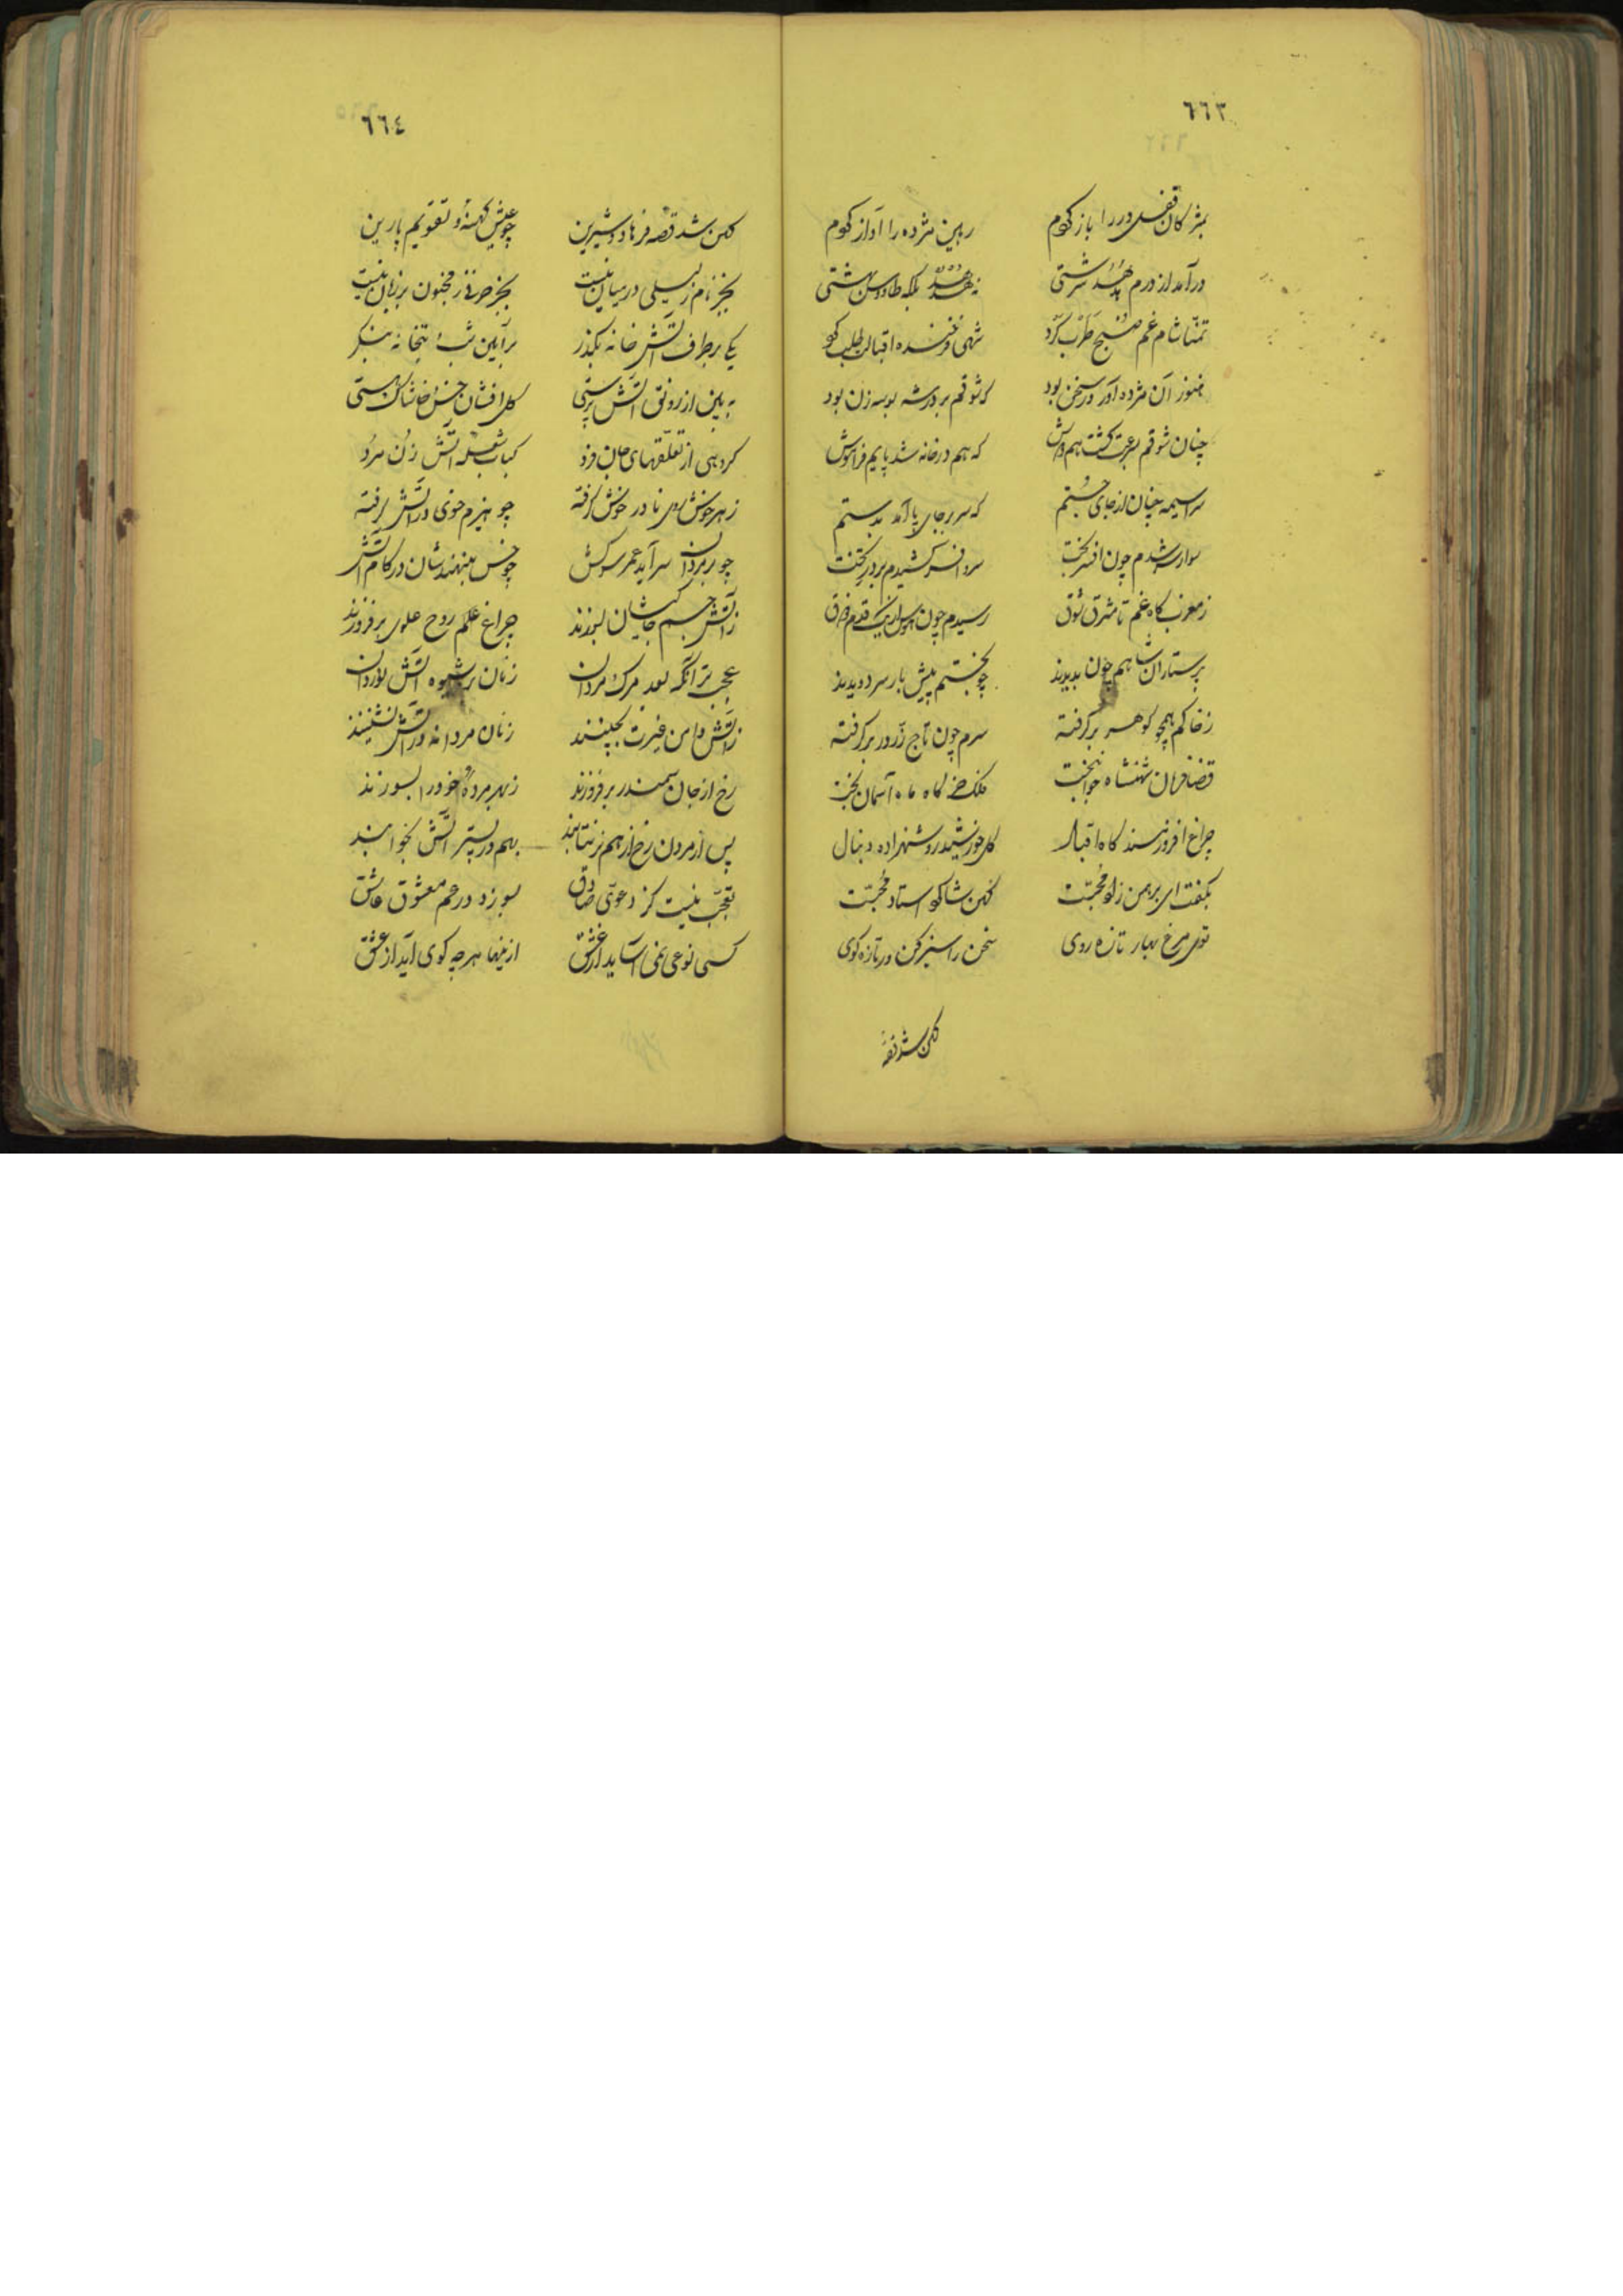 ٦٦٣
بمژگان قفل در را باز کردم رهین مژده را آواز کردم
درآمد از درم هدهد سرشتی نه هدهد بلکه طاووس بهشتی
تمنا شام غم صبح طرب کرد شهی فرخنده اقبالی طلب کرد
هنوز آن مژده آور در سخن بود که شوقم بر در شه بوسه زن بود
چنان شوقم بسرعت گشت هم‌دوش که هم در خانه شد پایم فراموش
سراسیمه چنان از جای جستم که سر بر جای پا آمد بدستم
سوار سر شدم چون افسر بخت سر و افسر کشیدم بر در تخت
ز مغرب گاه غم تا مشرق شوق رسیدم چون از یک قدم فرق
پرستاران شاهم چون بدیدند چو بختم پیش باز سر دویدند
ز خاکم همچو گوهر برگرفته سرم چون تاج زر در برگرفته
قضا فرمان شهنشاه جوانبخت فلک خرگاه ماه آسمان تخت
چراغ افروز مسند گاه اقبال گل خورشید رو شهزاده دنیال
بگفت ای برهمن زاد محبت کهن شاگرد استاد محبت
توی مرغ بهار تازه روی سخن را سبز کن در تازه گوی
کهن شد قصهٔ
٦٦٤
کهن شد قصه فرهاد و شیرین چو عیش کهنه و تقویم پارین
بجز نام ز لیلی در میان نیست بجز حرفی ز مجنون بر زبان نیست
یکی بر طرف آتش خانه بگذر بر آیین شب بتخانه بنگر
به بین از رونق آتش پرستی گل افشان خس و خاشاک هستی
گروهی از تعلقهای جان فرد کباب شعله آتش زن و مرد
ز هر خوش در خوش گرفته چو هیزم خوی در آتش گرفته
چو بر مردان سر آید عمر سرکش چو خس بنهندشان در کام آتش
ز آتش جسم خاکیشان بسوزند چراغ علم روح علوی برفروزند
عجب تر آنکه بعد مرگ مردان زنان بر شیوه آتش نوردان
ز آتش دامن غیرت نچینند زنان مردانه در آتش نشینند
رخ از جان سمندر برفروزند ز بهر مرده خود را بسوزند
پس از مردن رخ از هم برنتابند بهم در بستر آتش بخوابند
تعجب نیست کز دعوی صادق بسوزد در غم معشوق عاشق
کسی نوعی نمی‌آساید از عشق ازینها هرچه گوی آید از عشق